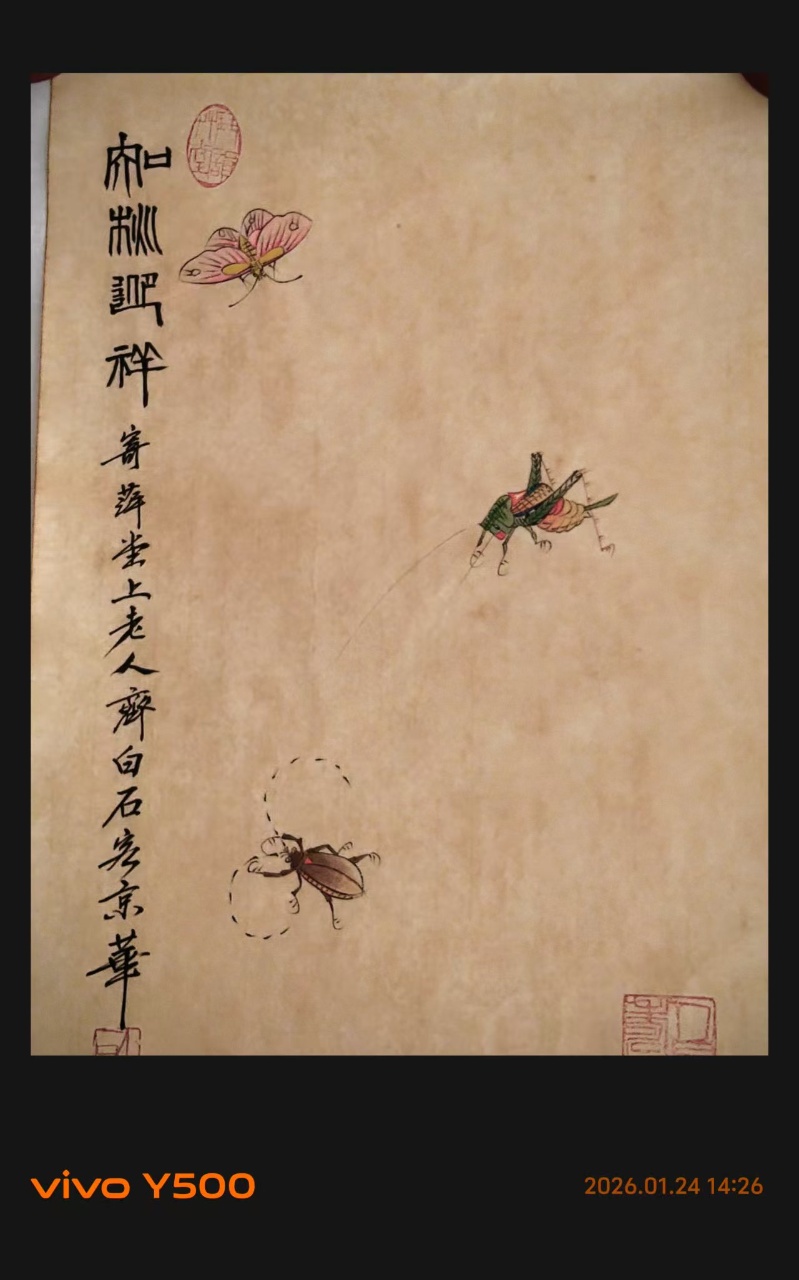 知秋迎祥 寄萍堂上老人齊白石客京華
vivo Y500
2026.01.24 14:26